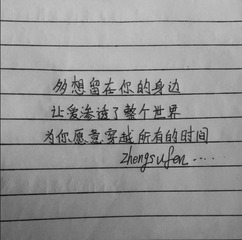 多想留在你的身边
让爱渗透了整个世界
为你愿意穿越所有的时间
zhengsufen....